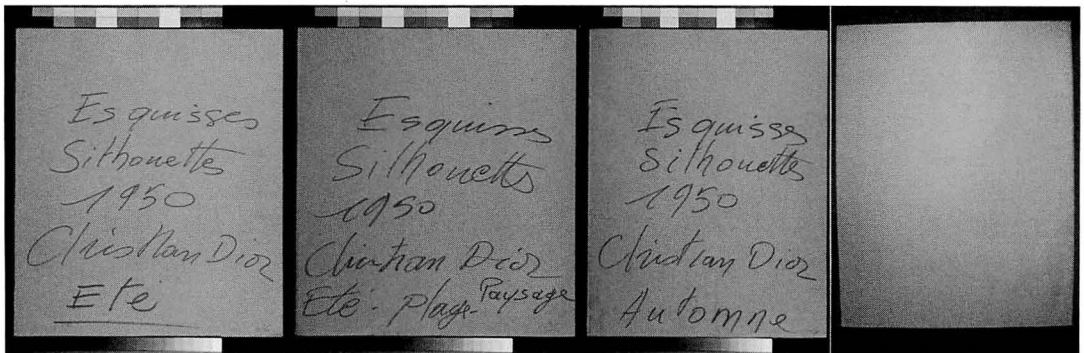 Esquisses
Silhouettes
1950
Christian Dior
Eté
Esquisses
Silhouettes
1950
Christian Dior
Eté - Plage - Paysage
Esquisses
Silhouettes
1950
Christian Dior
Automne